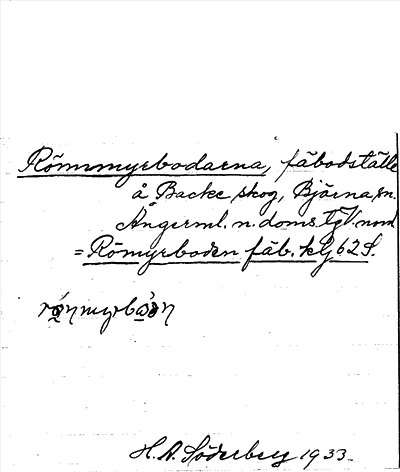 Römmyrbodarna, fäbodställe
å Backe skog, Björna sn.
Ångerml. n. doms. tgl. nord
= Römyrboden fäb. klj 62 S.
H. A. Söderberg 1933.